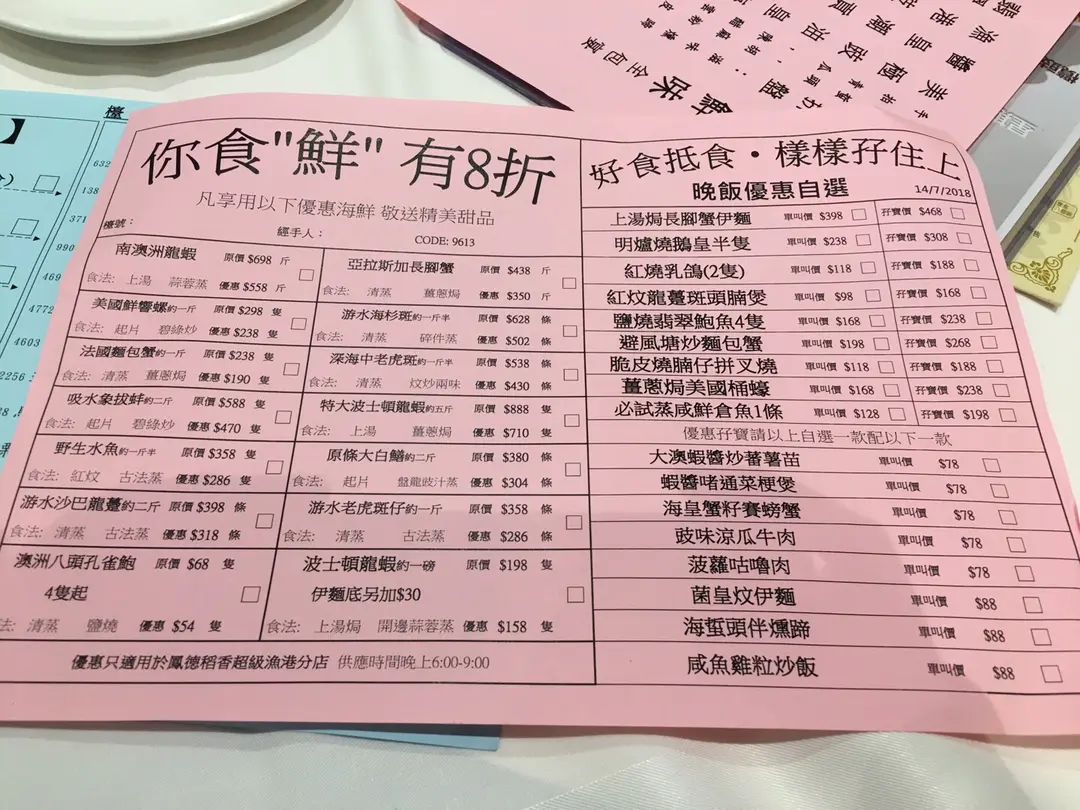 你食"鮮" 有8折
凡享用以下優惠海鮮 敬送精美甜品
檯號：
經手人：
CODE: 9613
南澳洲龍蝦 原價 $698 斤
食法: 上湯 蒜蓉蒸 優惠 $558 斤
美國鮮響螺約一斤 原價 $298 隻
食法: 起片 碧綠炒 優惠 $238 隻
法國麵包蟹約一斤 原價 $238 隻
食法: 清蒸 薑蔥焗 優惠 $190 隻
吸水象拔蚌約二斤 原價 $588 隻
食法: 起片 碧綠炒 優惠 $470 隻
野生水魚約一斤半 原價 $358 隻
食法: 紅炆 古法蒸 優惠 $286 隻
游水沙巴龍躉約二斤 原價 $398 條
食法: 清蒸 古法蒸 優惠 $318 條
澳洲八頭孔雀鮑 原價 $68 隻
4隻起
法: 清蒸 鹽燒 優惠 $54 隻
亞拉斯加長腳蟹 原價 $438 斤
食法: 清蒸 薑蔥焗 優惠 $350 斤
游水海杉斑約一斤半 原價 $628 條
食法: 清蒸 碎件蒸 優惠 $502 條
深海中老虎斑約一斤半 原價 $538 條
食法: 清蒸 炆炒兩味 優惠 $430 條
特大波士頓龍蝦約五斤 原價 $888 隻
食法: 上湯 薑蔥焗 優惠 $710 隻
原條大白鱔約二斤 原價 $380 條
食法: 起片 盤龍豉汁蒸 優惠 $304 條
游水老虎斑仔約一斤 原價 $358 條
食法: 清蒸 古法蒸 優惠 $286 條
波士頓龍蝦約一磅 原價 $198 隻
伊麵底另加$30
食法: 上湯焗 開邊蒜蓉蒸 優惠 $158 隻
優惠只適用於鳳德稻香超級漁港分店 供應時間晚上6:00-9:00
好食抵食・樣樣孖住上
晚飯優惠自選 14/7/2018
上湯焗長腳蟹伊麵 單叫價 $398 孖寶價 $468
明爐燒鵝皇半隻 單叫價 $238 孖寶價 $308
紅燒乳鴿(2隻) 單叫價 $118 孖寶價 $188
紅炆龍躉斑頭腩煲 單叫價 $98 孖寶價 $168
鹽燒翡翠鮑魚4隻 單叫價 $168 孖寶價 $238
避風塘炒麵包蟹 單叫價 $198 孖寶價 $268
脆皮燒腩仔拼叉燒 單叫價 $118 孖寶價 $188
薑蔥焗美國桶蠔 單叫價 $168 孖寶價 $238
必試蒸咸鮮倉魚1條 單叫價 $128 孖寶價 $198
優惠孖寶請以上自選一款配以下一款
大澳蝦醬炒蕃薯苗 單叫價 $78
蝦醬啫通菜梗煲 單叫價 $78
海皇蟹籽賽螃蟹 單叫價 $78
豉味涼瓜牛肉 單叫價 $78
菠蘿咕嚕肉 單叫價 $78
菌皇炆伊麵 單叫價 $88
海蜇頭伴燻蹄 單叫價 $88
咸魚雞粒炒飯 單叫價 $88
檯
632
138
371
990
469
4772
4603
2256